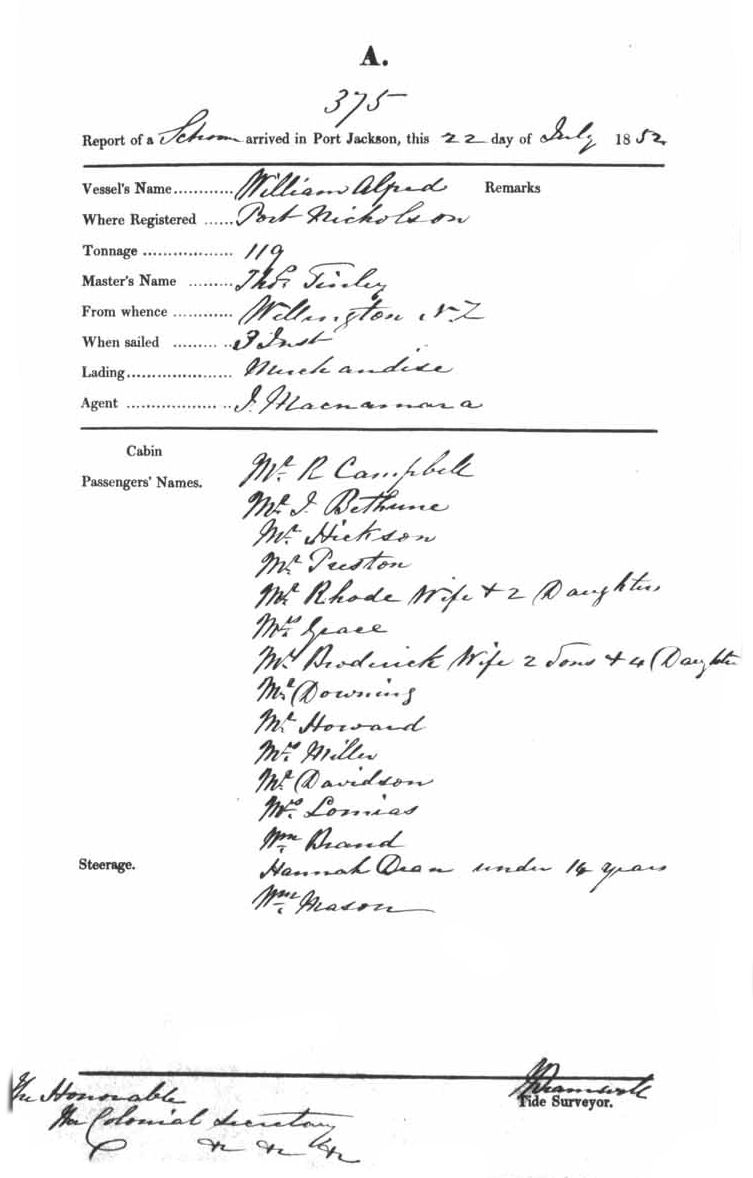 A.
375
Report of a Schoon arrived in Port Jackson, this 22 day of July 1852
Vessel's Name............ William Alfred Remarks
Where Registered ...... Port Nicholson
Tonnage .................. 119
Master's Name ......... Thos. Tinley
From whence ............ Wellington NZ
When sailed ........... Inst
Lading..................... Merchandise
Agent ..................... J. Macnamara
Cabin
Passengers' Names.
Mr. R Campbell
Mr. J. Bethune
Mr. Hickson
Mr. Preston
Mr. Rhode Wife & 2 Daughters
Mrs. Grace
Mr. Broderick Wife 2 Sons & 4 Daughters
Mr. Downing
Mr. Howard
Mrs. Miller
Mr. Davidson
Mrs. Lomias
Wm. Brand
Steerage. Hannah Dean under 14 years
Wm. Mason
The Honorable
The Colonial Secretary
&c &c &c
Tide Surveyor.